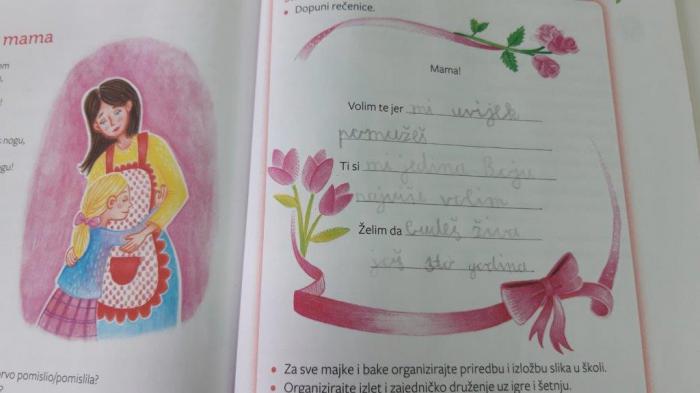 mama
nogu,
gu!
rvo pomislio/pomislila?
• Dopuni rečenice.
Mama!
Volim te jer mi uvijek
pomužeš
Ti si mi jedina
najviše volim
Želim da budeš živa
još sto godina
• Za sve majke i bake organizirajte priredbu i izložbu slika u školi.
• Organizirajte izlet i zajedničko druženje uz igre i šetnju.